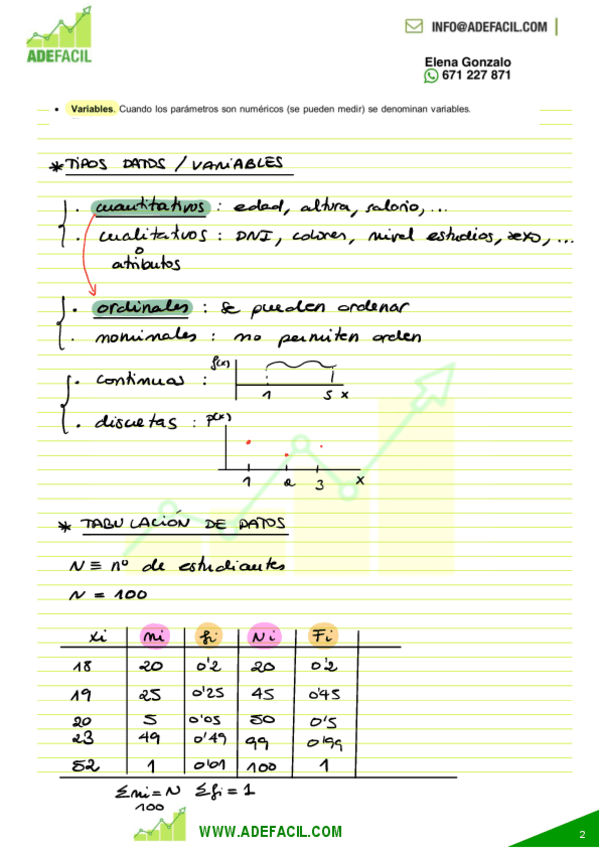 ADEFACIL
INFO@ADEFACIL.COM
Elena Gonzalo
671 227 871
• Variables. Cuando los parámetros son numéricos (se pueden medir) se denominan variables.
* TIPOS DATOS / VARIABLES
· cuantitativos : edad, altura, salario, ...
· cualitativos : DNI, colores, nivel estudios, sexo, ...
o
atributos
· ordinales : se pueden ordenar
· nominales : no permiten orden
f(x)
· continuas :
1 5 x
· discretas : p(x)
1 2 3 x
* TABULACIÓN DE DATOS
N ≡ nº de estudiantes
N = 100
xi ni fi Ni Fi
18 20 0'2 20 0'2
19 25 0'25 45 0'45
20 5 0'05 50 0'5
23 49 0'49 99 0'99
52 1 0'01 100 1
Σni = N Σfi = 1
100
WWW.ADEFACIL.COM
2